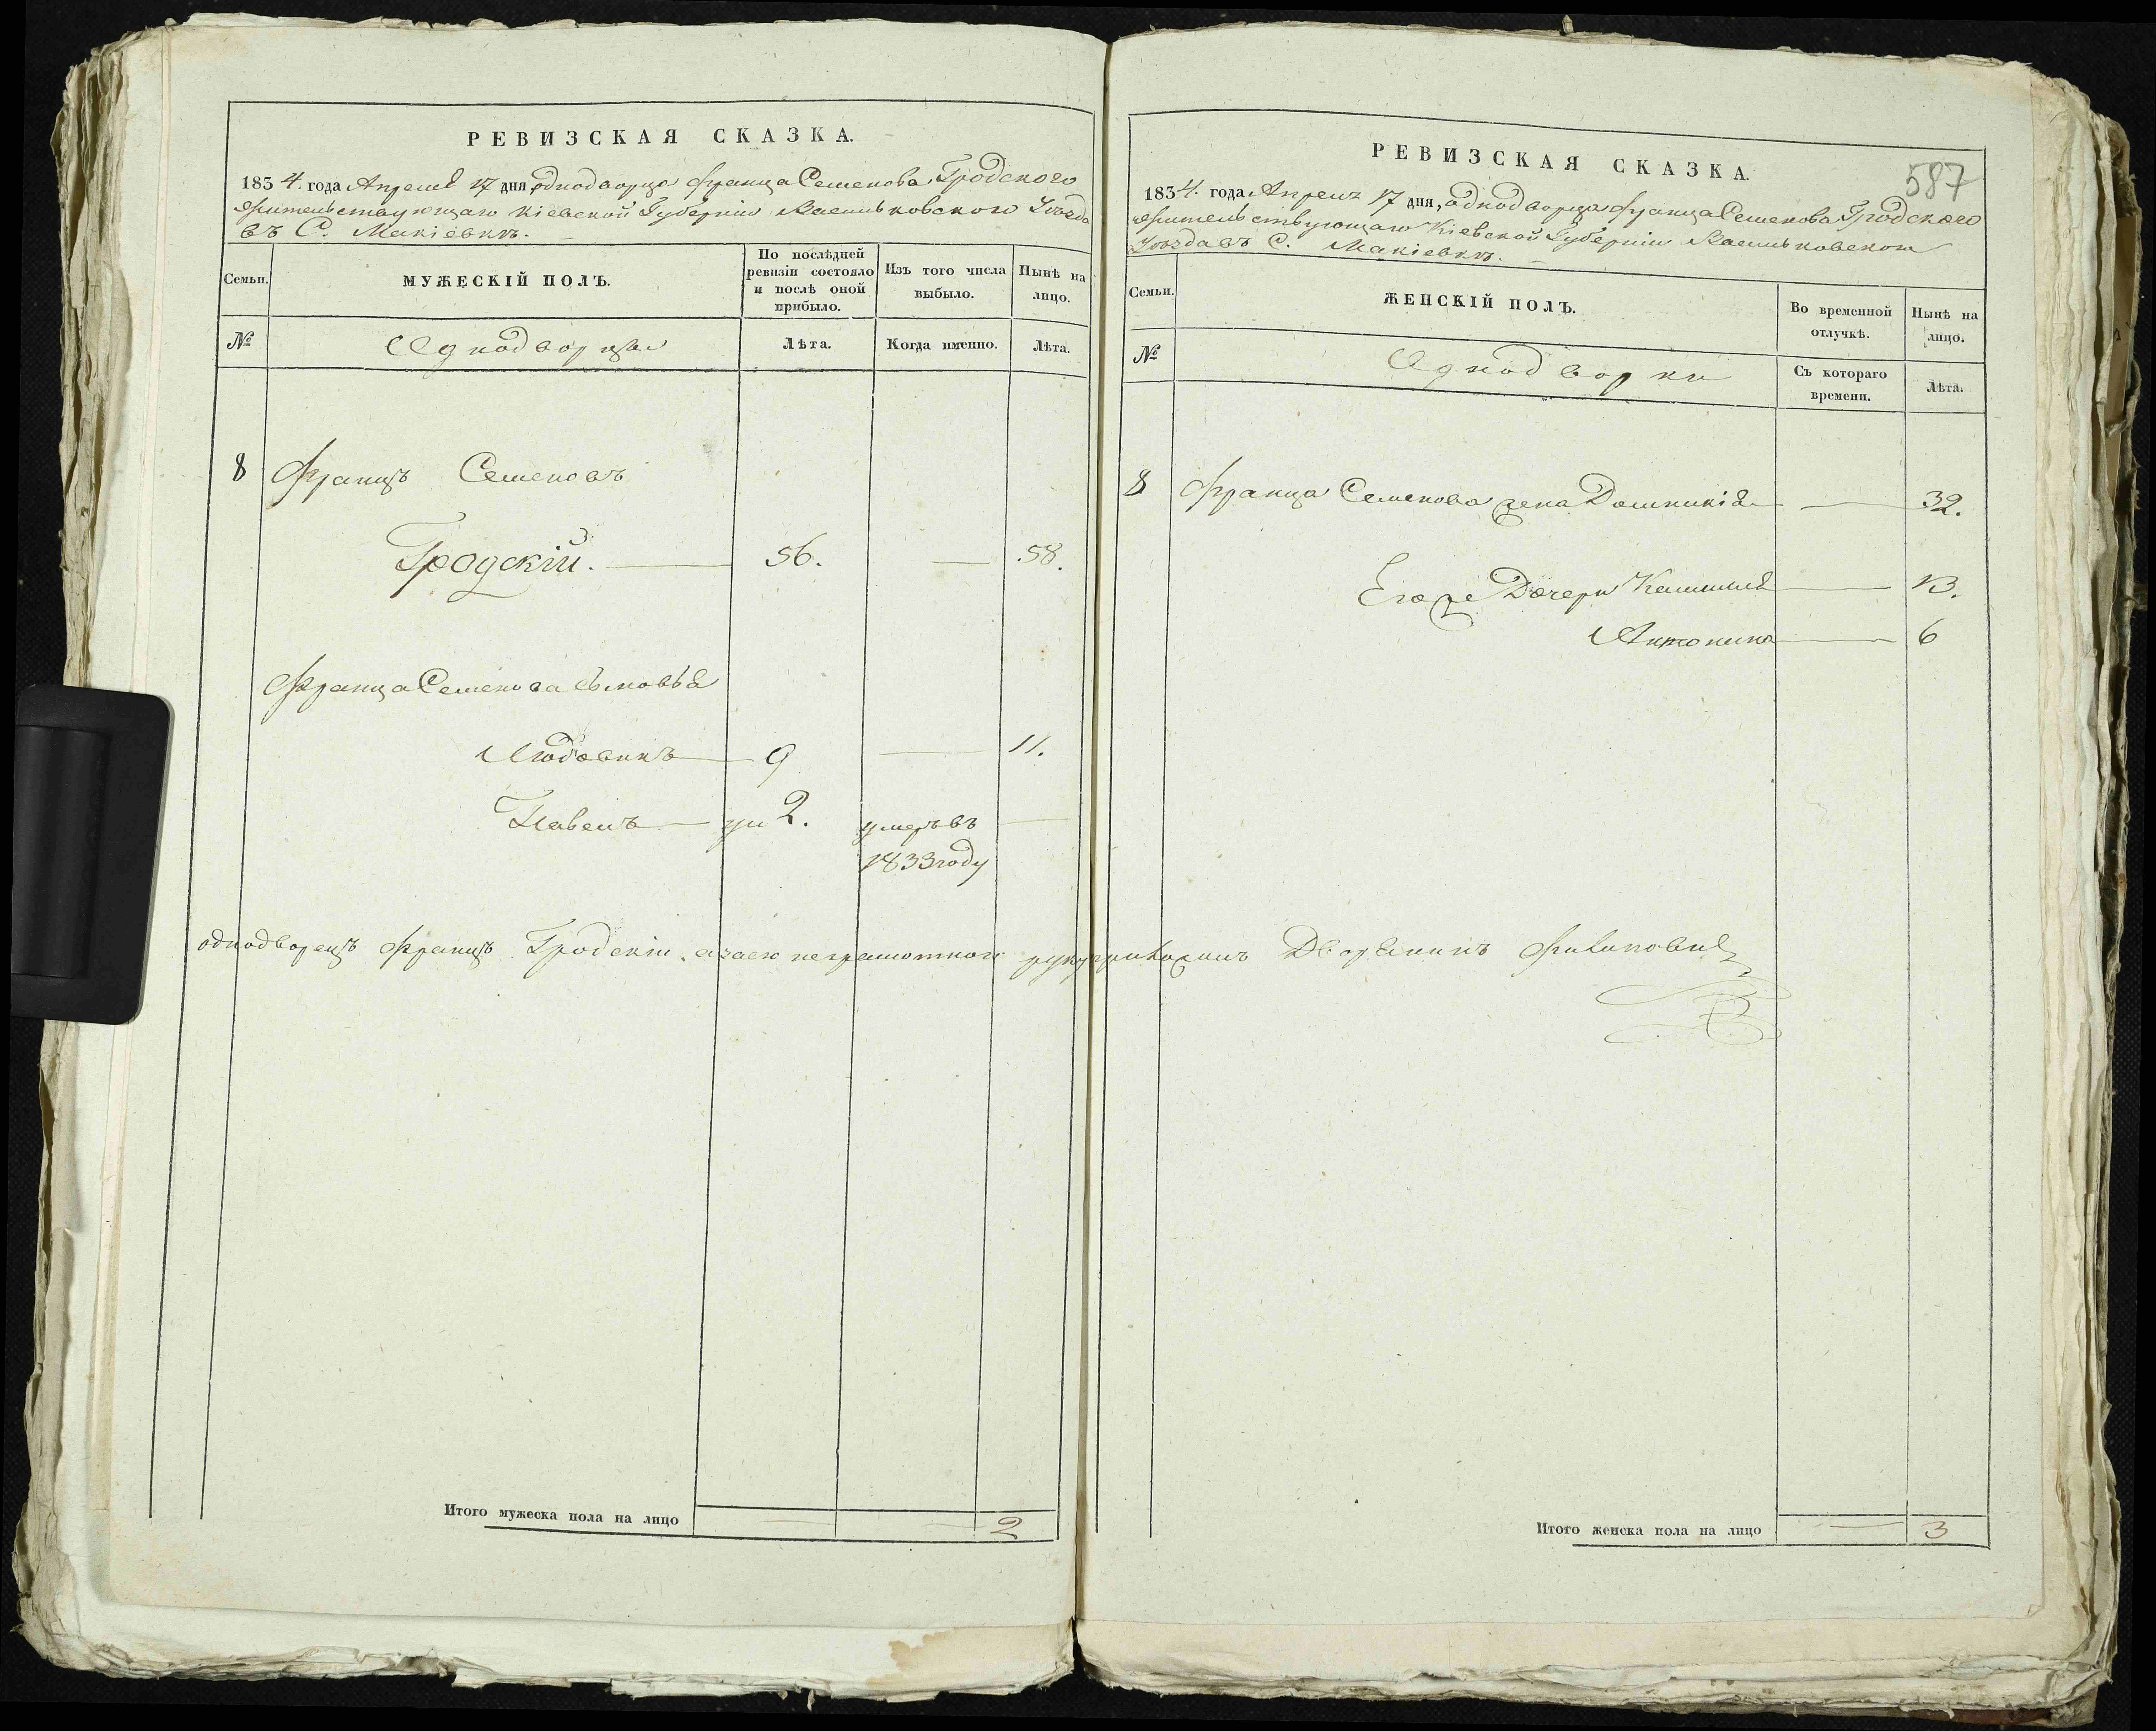 РЕВИЗСКАЯ СКАЗКА.
1834. года Апреля 17 дня, однодворца Франца Семенова Гродского
жительствующаго Кіевской Губерніи Васильковского Уезда
въ С. Макіевкѣ.
Семьи.
МУЖЕСКІЙ ПОЛЪ.
По послѣдней ревизіи состояло и послѣ оной прибыло.
Изъ того числа выбыло.
Нынѣ на лицо.
№
Однодворцы
Лѣта.
Когда именно.
Лѣта.
8 Францъ Семеновъ
Гродскій. 56. — 58.
Франца Семенова сыновья
Людовикъ 9 — 11.
Павелъ 2. умеръ въ —
1833 году
однодворецъ Францъ Гродскій, а за его неграмотного руку приложилъ Дворянинъ
Итого мужеска пола на лицо — — 2
587
РЕВИЗСКАЯ СКАЗКА.
1834. года Апреля 17 дня, однодворца Франца Семенова Гродского
жительствующаго Кіевской Губерніи Васильковском
Уезда въ С. Макіевкѣ.
Семьи.
ЖЕНСКІЙ ПОЛЪ.
Во временной отлучкѣ.
Нынѣ на лицо.
№
Однодворки
Съ котораго времени.
Лѣта.
8 Франца Семенова жена Доминикія — 32.
Его же Дочери Камилія — 13.
Антонина — 6
Итого женска пола на лицо — 3